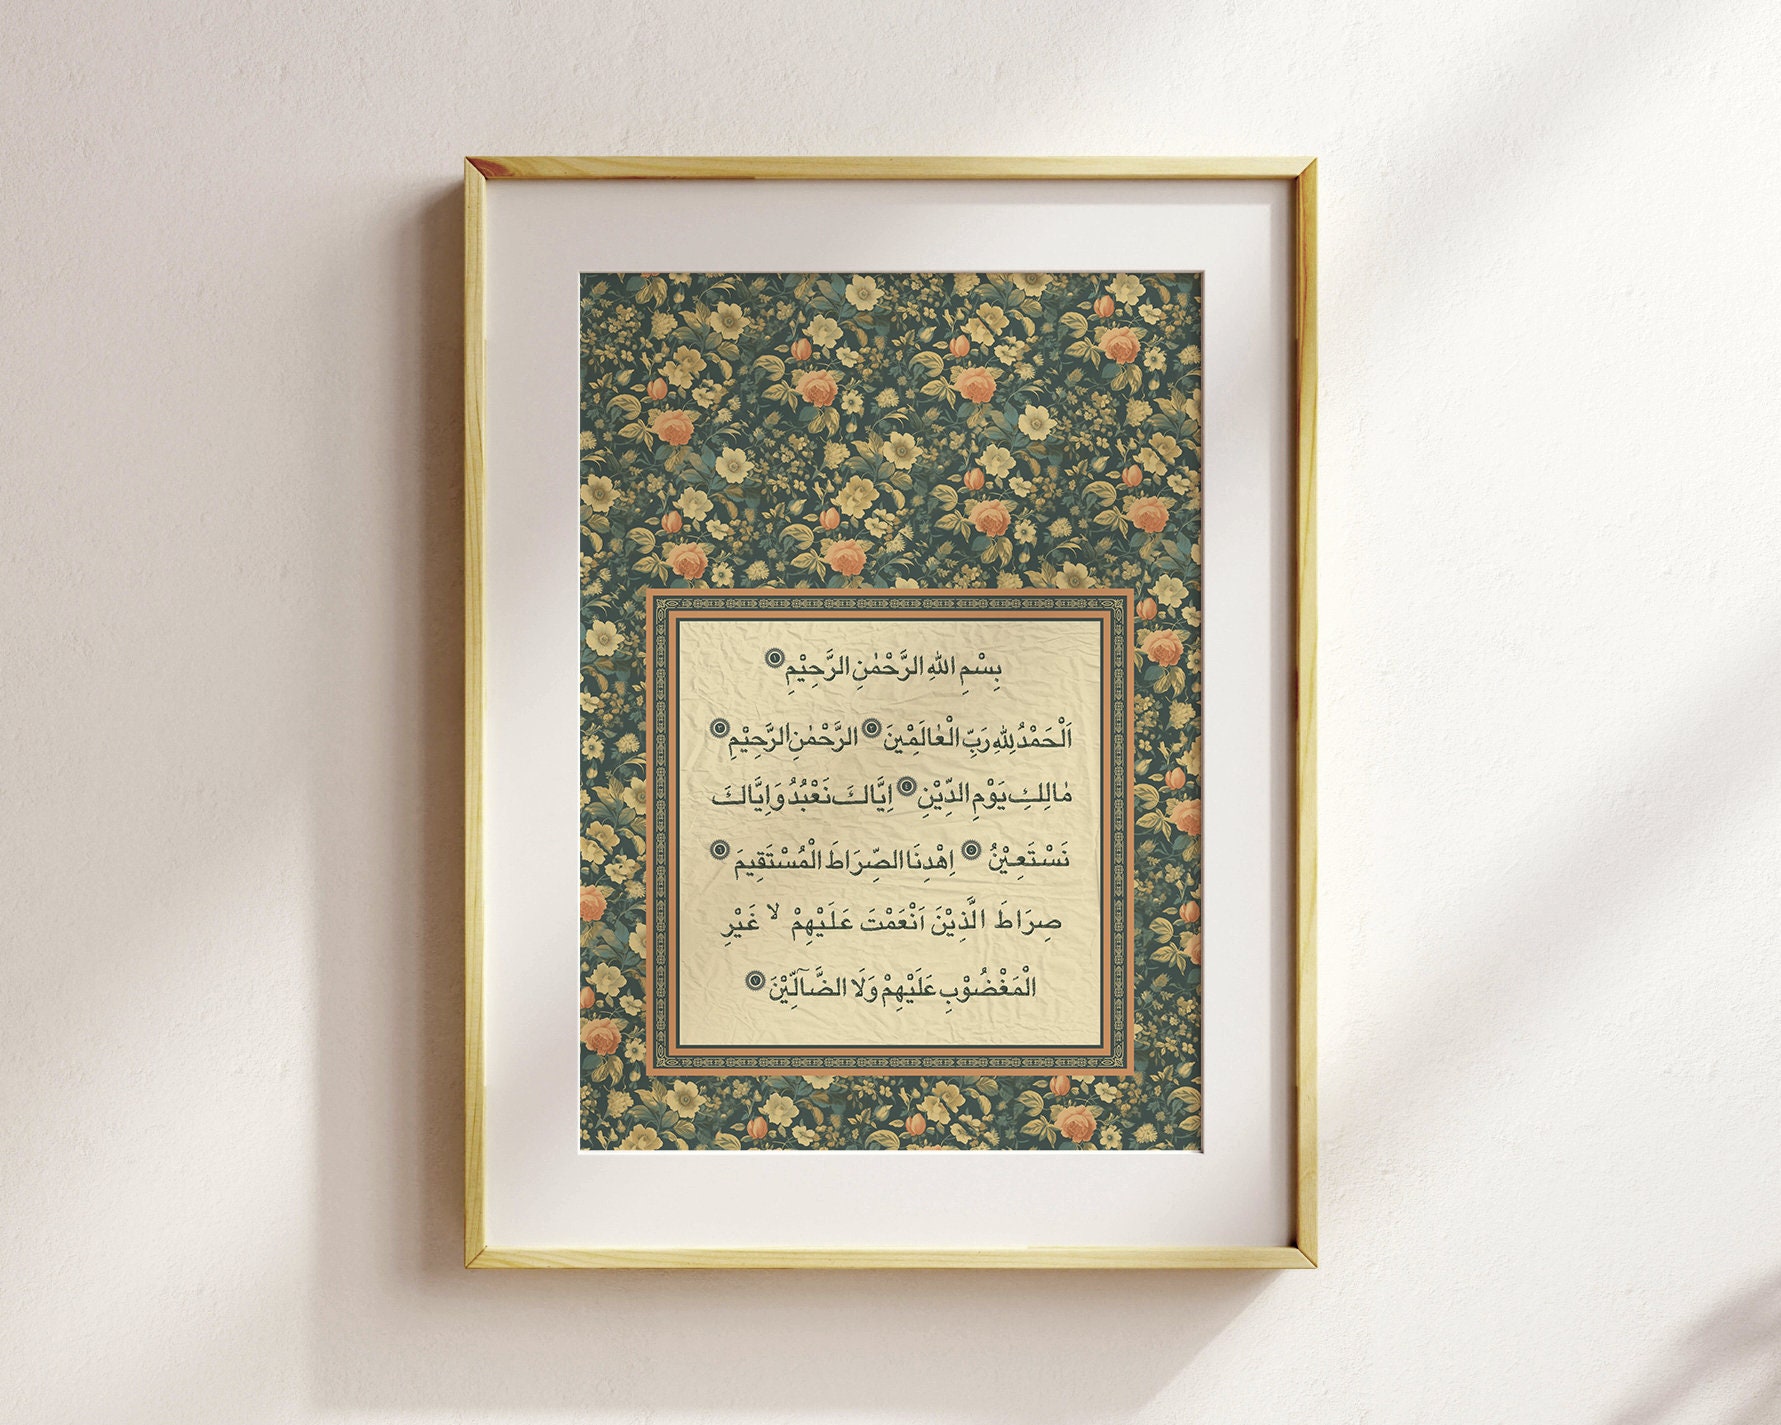 بِسْمِ اللهِ الرَّحْمٰنِ الرَّحِيْمِ ١
اَلْحَمْدُ لِلهِ رَبِّ الْعٰالَمِيْنَ ٢ الرَّحْمٰنِ الرَّحِيْمِ ٣
مٰالِكِ يَوْمِ الدِّيْنِ ٤ اِيَّاكَ نَعْبُدُ وَاِيَّاكَ
نَسْتَعِيْنُ ٥ اِهْدِنَا الصِّرَاطَ الْمُسْتَقِيمَ ٦
صِرَاطَ الَّذِيْنَ اَنْعَمْتَ عَلَيْهِمْ ۙ غَيْرِ
الْمَغْضُوْبِ عَلَيْهِمْ وَلَا الضَّآلِّيْنَ ٧